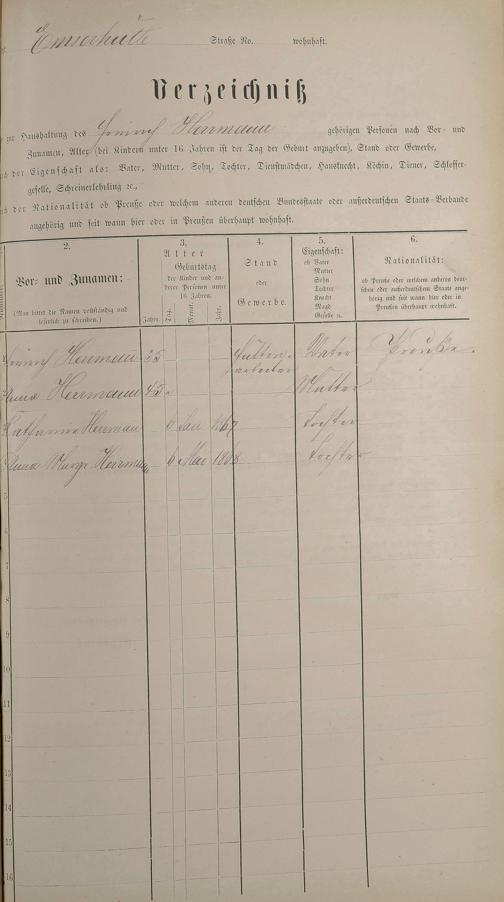 Emserhütte Straße No. wohnhaft.
Verzeichniß
zur Haushaltung des Heinrich Herrmann gehörigen Personen nach Vor- und
Zunamen, Alter (bei Kindern unter 16 Jahren ist der Tag der Geburt anzugeben), Stand oder Gewerbe,
nach der Eigenschaft als: Vater, Mutter, Sohn, Tochter, Dienstmädchen, Hausknecht, Köchin, Diener, Schlosser-
geselle, Schreinerlehrling ꝛc.,
nach der Nationalität ob Preuße oder welchem anderen deutschen Bundesstaate oder außerdeutschen Staats-Verbande
angehörig und seit wann hier oder in Preußen überhaupt wohnhaft.
2.
Vor- und Zunamen:
(Man bittet die Namen vollständig und
leserlich zu schreiben.)
3.
Alter
Geburtstag
der Kinder und an-
derer Personen unter
16 Jahren.
Jahre. Tag. Monat. Jahr.
4.
Stand
oder
Gewerbe.
5.
Eigenschaft:
ob Vater
Mutter
Sohn
Tochter
Knecht
Magd
Geselle ꝛc.
6.
Nationalität:
ob Preuße oder welchem anderen deut-
schen oder außerdeutschen Staate ange-
hörig und seit wann hier oder in
Preußen überhaupt wohnhaft.
Heinrich Herrmann Hütten-
arbeiter Vater Preuße.
Anna Herrmann 45 Mutter
Catharina Herrman 6 Jan 1867 Tochter
Anna Margr. Herrmann 6 Mai 1868 Tochter
5
6
7
8
9
10
11
12
13
14
15
16